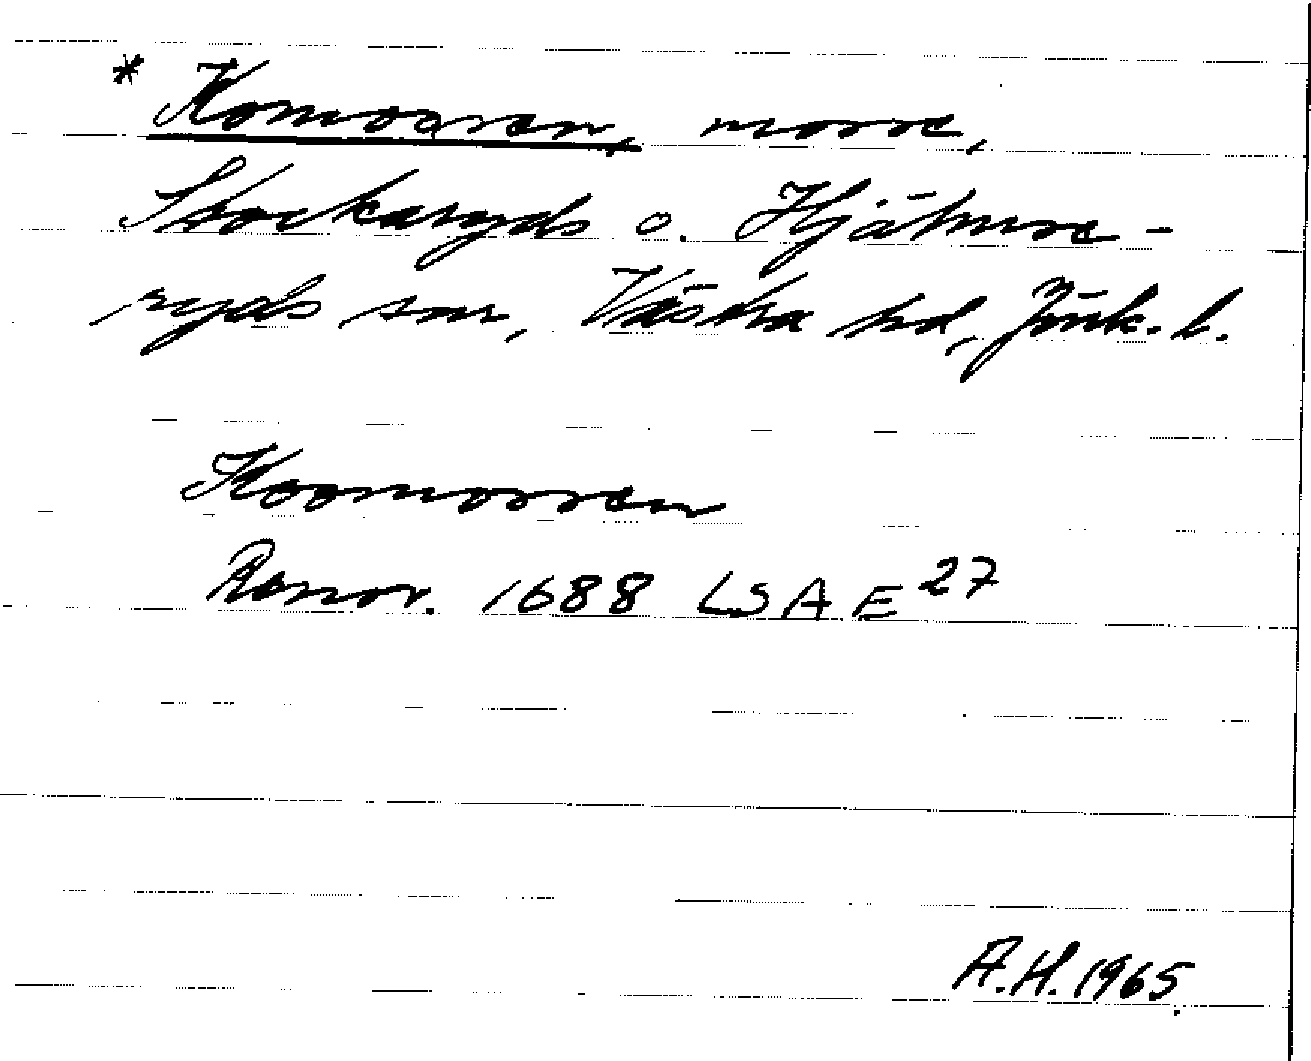 * Komossen, mosse,
Stockaryds o. Hjälmse-
ryds snr, Västra hd, Jönk. l.
Koomossen
Ransr. 1688 LSA E 27
A.H. 1965